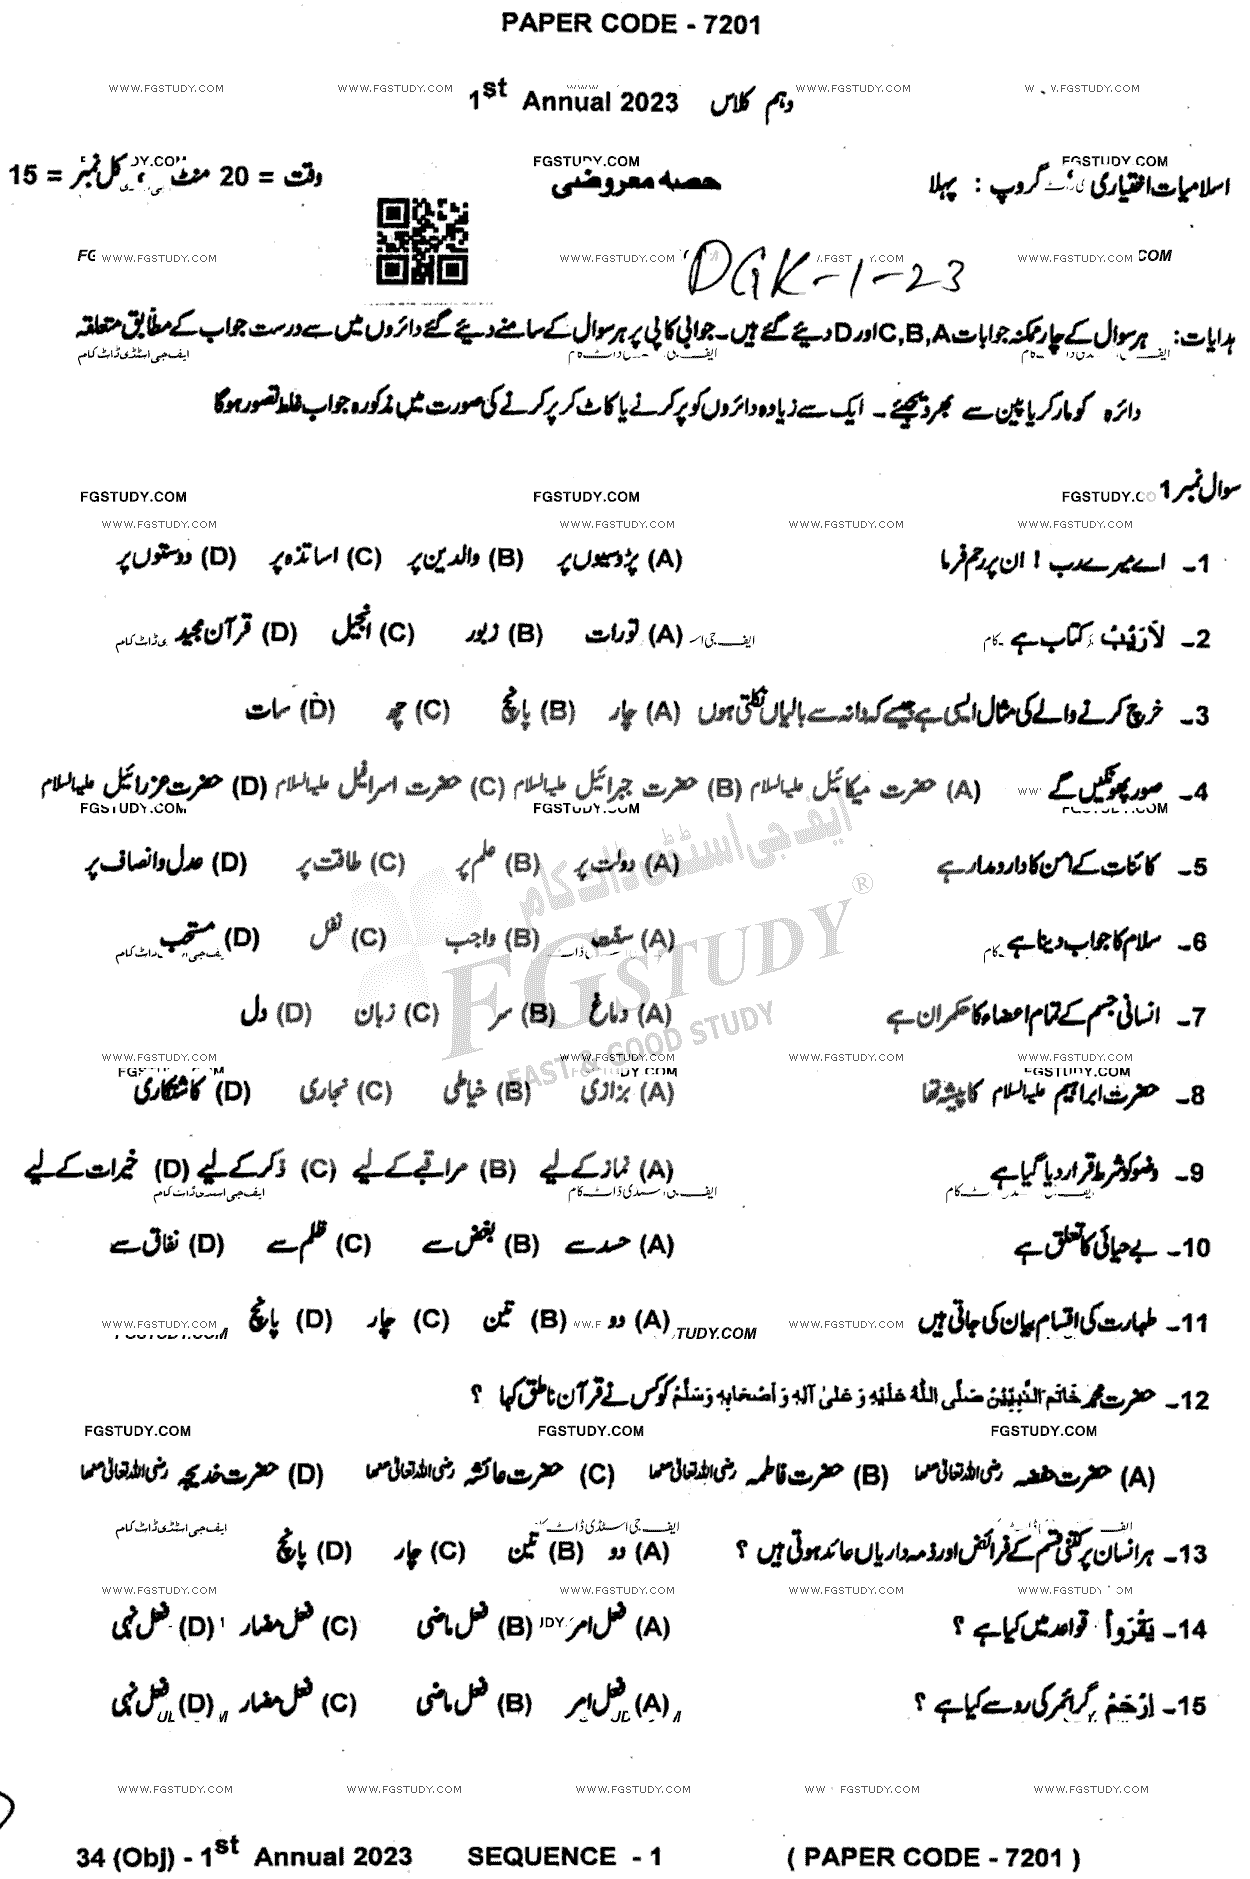 PAPER CODE - 7201
WWW.FGSTUDY.COM WWW.FGSTUDY.COM WWW.FGSTUDY.COM
1st Annual 2023 دہم کلاس
FGSTUDY.COM FGSTUDY.COM
اسلامیات اختیاری گروپ : پہلا حصہ معروضی وقت = 20 منٹ ، کل نمبر = 15
WWW.FGSTUDY.COM WWW.FGSTUDY.COM WWW.FGSTUDY.COM
DGK-1-23
ہدایات: ہر سوال کے چار ممکنہ جوابات C,B,A اور D دیئے گئے ہیں۔ جوابی کاپی پر ہر سوال کے سامنے دیئے گئے دائروں میں سے درست جواب کے مطابق متعلقہ
ایف جی اسٹڈی ڈاٹ کام
دائرہ کو مارکر یا پین سے بھر دیجئے۔ ایک سے زیادہ دائروں کو پر کرنے یا کاٹ کر پر کرنے کی صورت میں مذکورہ جواب غلط تصور ہوگا
سوال نمبر 1
FGSTUDY.COM FGSTUDY.COM
WWW.FGSTUDY.COM WWW.FGSTUDY.COM WWW.FGSTUDY.COM WWW.FGSTUDY.COM
1۔ اے میرے رب ! ان پر رحم فرما (A) پڑوسیوں پر (B) والدین پر (C) اساتذہ پر (D) دوستوں پر
2۔ لاَرَیْبَ کتاب ہے (A) تورات (B) زبور (C) انجیل (D) قرآن مجید
3۔ خرچ کرنے والے کی مثال ایسی ہے جیسے کہ دانہ سے بالیاں نکلتی ہوں (A) چار (B) پانچ (C) چھ (D) سات
4۔ صور پھونکیں گے (A) حضرت میکائیل علیہ السلام (B) حضرت جبرائیل علیہ السلام (C) حضرت اسرافیل علیہ السلام (D) حضرت عزرائیل علیہ السلام
FGSTUDY.COM FGSTUDY.COM FGSTUDY.COM
ایف جی اسٹڈی ڈاٹ کام
5۔ کائنات کے امن کا دارومدار ہے (A) دولت پر (B) علم پر (C) طاقت پر (D) عدل و انصاف پر
FGSTUDY ®
6۔ سلام کا جواب دینا ہے (A) سنّت (B) واجب (C) نفل (D) مستحب
7۔ انسانی جسم کے تمام اعضاء کا حکمران ہے (A) دماغ (B) سر (C) زبان (D) دل
FAST & GOOD STUDY
WWW.FGSTUDY.COM WWW.FGSTUDY.COM WWW.FGSTUDY.COM WWW.FGSTUDY.COM
8۔ حضرت ابراہیم علیہ السلام کا پیشہ تھا (A) بزازی (B) خیاطی (C) نجاری (D) کاشتکاری
9۔ وضو کو شرط قرار دیا گیا ہے (A) نماز کے لیے (B) مراقبے کے لیے (C) ذکر کے لیے (D) خیرات کے لیے
10۔ بے حیائی کا تعلق ہے (A) حسد سے (B) بغض سے (C) ظلم سے (D) نفاق سے
11۔ طہارت کی اقسام بیان کی جاتی ہیں (A) دو (B) تین (C) چار (D) پانچ
WWW.FGSTUDY.COM WWW.FGSTUDY.COM
12۔ حضرت محمد خَاتَمَ النَّبِیّٖنَ صَلَّی اللّٰہُ عَلَیْہِ وَ عَلیٰ آلِہٖ وَ اَصْحَابِہٖ وَسَلَّمَ کو کس نے قرآن ناطق کہا ؟
FGSTUDY.COM FGSTUDY.COM FGSTUDY.COM
(A) حضرت حفصہ رضی اللہ تعالیٰ عنھا (B) حضرت فاطمہ رضی اللہ تعالیٰ عنھا (C) حضرت عائشہ رضی اللہ تعالیٰ عنھا (D) حضرت خدیجہ رضی اللہ تعالیٰ عنھا
ایف جی اسٹڈی ڈاٹ کام
13۔ ہر انسان پر کتنی قسم کے فرائض اور ذمہ داریاں عائد ہوتی ہیں ؟ (A) دو (B) تین (C) چار (D) پانچ
WWW.FGSTUDY.COM WWW.FGSTUDY.COM WWW.FGSTUDY.COM
14۔ یَقْرَوأ قواعد میں کیا ہے ؟ (A) فعل امر (B) فعل ماضی (C) فعل مضارع (D) فعل نہی
15۔ اِرْحَمْ گرائمر کی رو سے کیا ہے ؟ (A) فعل امر (B) فعل ماضی (C) فعل مضارع (D) فعل نہی
WWW.FGSTUDY.COM WWW.FGSTUDY.COM WWW.FGSTUDY.COM WWW.FGSTUDY.COM
34 (Obj) - 1st Annual 2023 SEQUENCE - 1 ( PAPER CODE - 7201 )